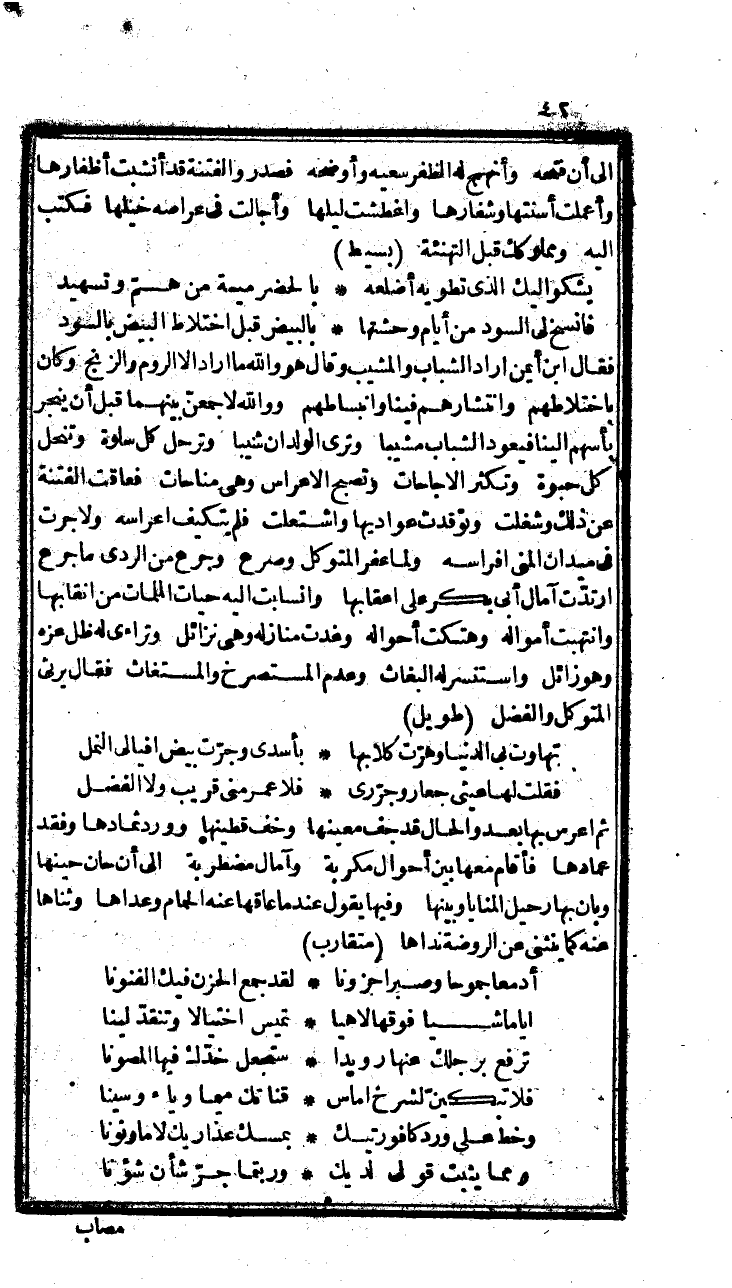 ٤٢
الى أن فتحه وأنهج له الظفر سعيه وأوضحه فصدر والفتنة قد أنشبت أظفارها
وأعملت أسنتها وشفارها واغطشت ليلها وأجالت فى عراصه خيلها فكتب
اليه وعماوكت قبل التهنئة (بسيط)
يشكو اليك الذى تطويه أضلعه * بالحضر ميمة من هم وتسهيد
فانسخ لى السود من أيام وحشتها * بالبيض قبل اختلاط البيض بالسود
فقال ابن أيمن اراد الشباب والمشيب وقال هو والله ما اراد الا الروم والزنج وكان
باختلاطهم وانتشارهم فينا وانبساطهم ووالله لاجمعن بينهما قبل أن ينجر
بأسهم الينا فيعود الشباب مشيبا وترى الولدان شيبا وترحل كل سلوة وتنحل
كل حبوة وتكثر الاجاحات وتصبح الاعراس وهى مناحات فعاقت الفتنة
عن ذلك وشغلت وتوقدت عواديها واشتعلت فلم يتكيف اعراسه ولا جرت
فى ميدان المنى افراسه ولما عفر المتوكل وصرع وجرع من الردى ما جرع
ارتدّت آمال أبى بكر على اعقابها وانسابت اليه حيات الملمات من انقابها
وانتهبت أمواله وهتكت أحواله وغدت منازله وهى نزائل وتراءى له ظل عزه
وهو زائل واستنسر له البغاث وعدم المستصرخ والمستغاث فقال يرثى
المتوكل والفضل (طويل)
تهاوت بى الدنيا وهرّت كلابها * بأسدى وجرّت بيض افيالى النمل
فقلت لها عيثى جعار وجرّرى * فلا عمر منى قريب ولا الفضل
ثم اعرس بها بعد والحال قد جف معينها وخف قطينها وورد ثمادها وفقد
عمادها فأقام معها بين أحوال مكربة وآمال مضطربة الى أن حان حينها
وبان بها رحيل المنايا وبينها وفيها يقول عند ما عاقها عنه الحمام وعداها وثناها
عنه كما ينثنى عن الروضة نداها (متقارب)
أدمعا جموحا وصبرا حرونا * لقد جمع الحزن فيك الفنونا
ايا ماشيا فوقها لاهيا * تميس اختيالا وتنقدّ لينا
ترفع برجلك عنها رويدا * ستجعل خدّك فيها المصونا
فلا تبكين لشرخ اماس * قناتك ميما وياء وسينا
وخط على ورد كافورتيك * بمسك عذاريك لاما ونونا
ومما يثبت قولى لديك * وربتما جرّ شأن شؤنا
مصاب